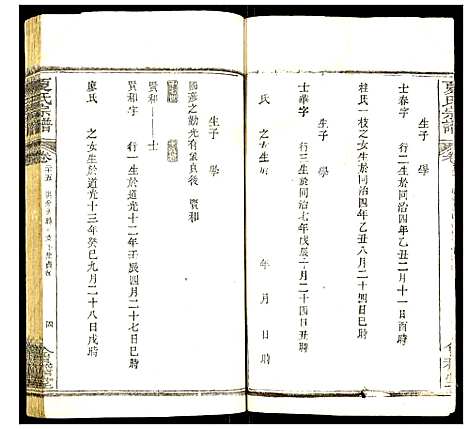 夏氏宗譜
士春字 行二生於同治四年乙丑二月十一日酉時
桂氏一枝之女生於同治四年乙丑八月二十四日巳時
生子 學
士華字 行三生於同治七年戊辰十月二十四日時
氏 之女生於 年 月 日 時
生子 學
國彥之勳光有眾良後 賢和
賢和 士
賢和字 行一生於道光十二年壬辰四月二十七日巳時
廖氏 之女生於道光十三年癸巳九月二十八日戌時
夏氏宗譜
卷
四